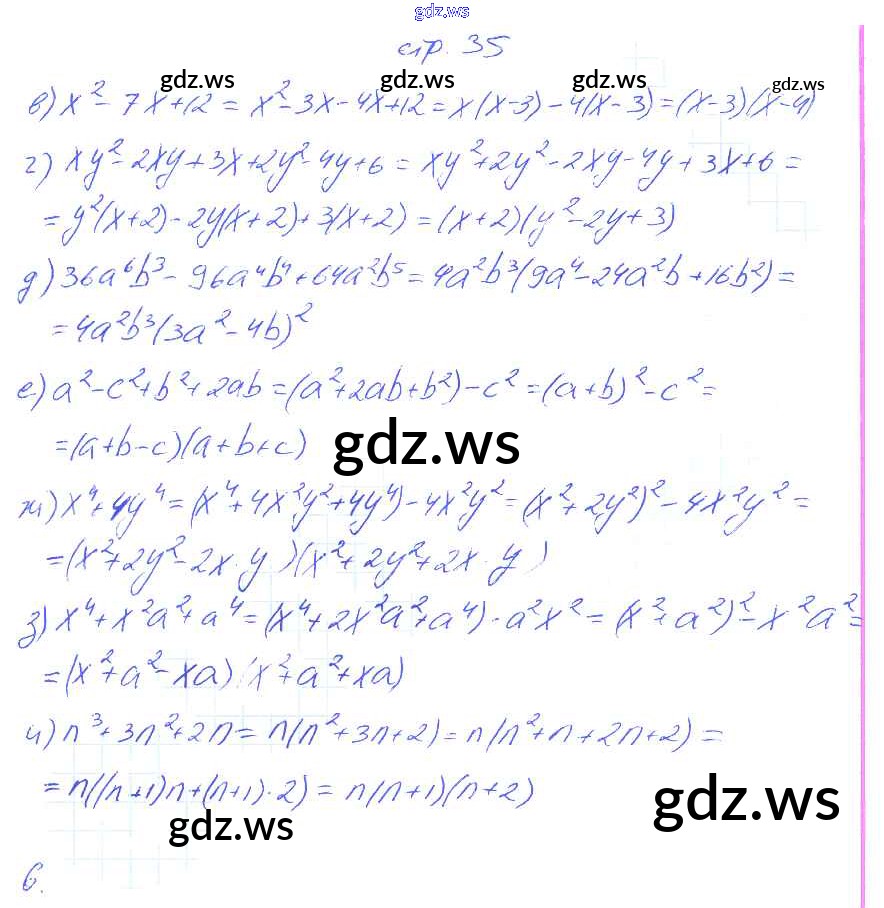 gdz.ws
стр. 35
gdz.ws gdz.ws gdz.ws gdz.ws
в) x² - 7x + 12 = x² - 3x - 4x + 12 = x(x-3) - 4(x-3) = (x-3)(x-4)
г) xy² - 2xy + 3x + 2y² - 4y + 6 = xy² + 2y² - 2xy - 4y + 3x + 6 =
= y²(x+2) - 2y(x+2) + 3(x+2) = (x+2)(y² - 2y + 3)
д) 36a⁶b³ - 96a⁴b⁴ + 64a²b⁵ = 4a²b³(9a⁴ - 24a²b + 16b²) =
= 4a²b³(3a² - 4b)²
е) a² - c² + b² + 2ab = (a² + 2ab + b²) - c² = (a+b)² - c² =
= (a+b-c)(a+b+c)
gdz.ws
ж) x⁴ + 4y⁴ = (x⁴ + 4x²y² + 4y⁴) - 4x²y² = (x² + 2y²)² - 4x²y² =
= (x² + 2y² - 2x·y)(x² + 2y² + 2x·y)
з) x⁴ + x²a² + a⁴ = (x⁴ + 2x²a² + a⁴) - a²x² = (x² + a²)² - x²a² =
= (x² + a² - xa)(x² + a² + xa)
и) n³ + 3n² + 2n = n(n² + 3n + 2) = n(n² + n + 2n + 2) =
= n((n+1)n + (n+1)·2) = n(n+1)(n+2)
gdz.ws gdz.ws
6.